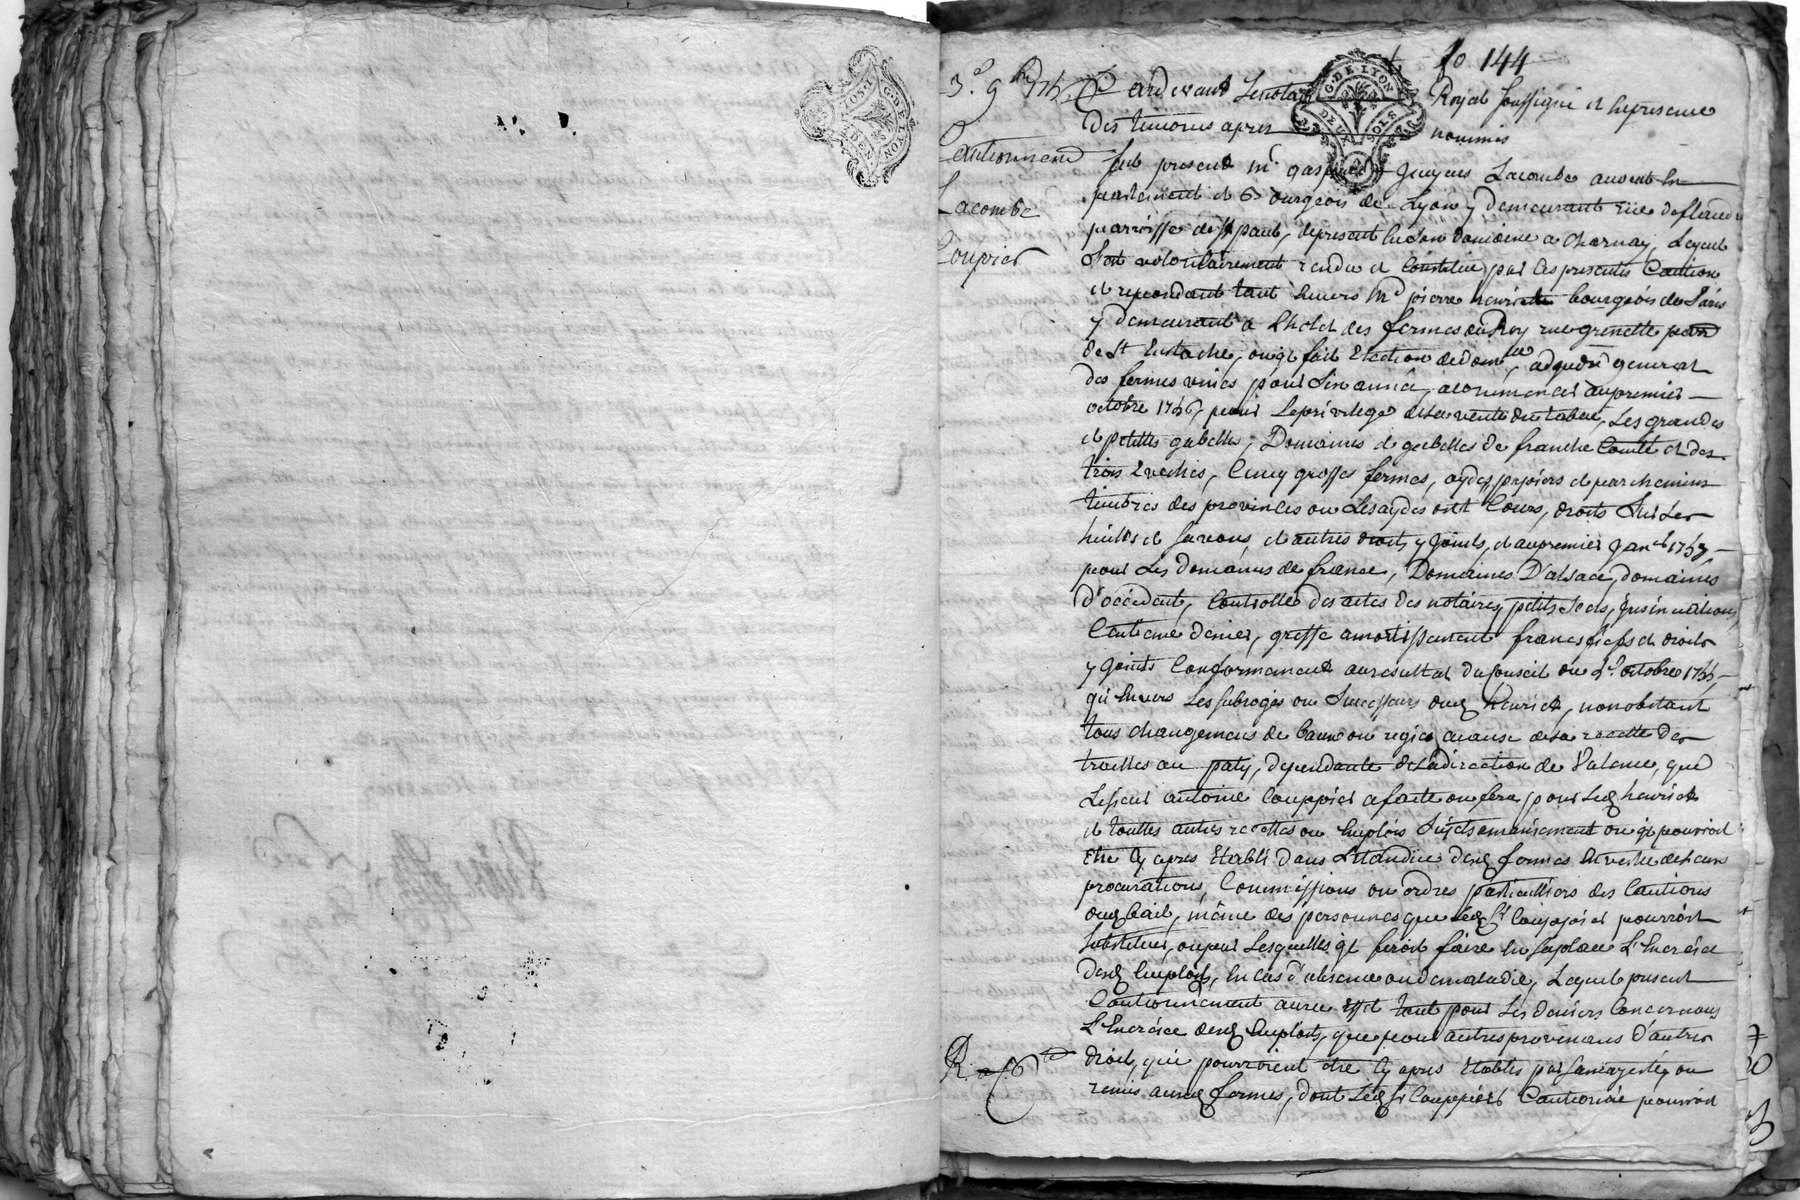 G. DE LYON
fo 144
3e 9bre 1756
Cautionnement
Lacombe
Coupier
Pardevant Le nota Royal soussigné et En presence
des temoins apres nommés
fut present Mr gaspard Lacombe avocat En
parlement et Bourgeois de Lyon y demeurant rüe
parroisse de St paul, de present En son domaine a Charnay, Lequel
s'est volontairement rendu et Constitué par Ces presentes Caution
et repondant tant Envers Mr pierre henriet bourgeois de Paris
y demeurant a L'hotel des fermes du Roy rue grenelle parr
de St Eustache, ou il fait Election de domlle, general
des fermes unies pour Six années a Commencer au premier
octobre 1756, pour Le privilege de La vente du tabac, Les grandes
et petittes gabelles, Domaines et gabelles de franche Comté et des
trois Evechés, Cinq grosses fermes, aydes papiers et parchemins
timbrés des provinces ou Les aydes ont Cours, droits Sur Les
huilles et savons, et autres droits y Joints, et au premier Janer 1757
pour Les Domaines de france, Domaines D'alsace, domaines
d'occident, Controlle des actes des notaires, petits Scels, Insinuations,
Centieme denier, greffe amortissement francs fiefs et droits
y Joints Conformement au resultat du Conseil du octobre 1755,
qu'Envers Les subrogés ou Successeurs dud henriet, nonobstant
tous changemens de baux ou regies, a cause de La recette des
traittes au paty, dependante de La direction de Valence, que
Le sieur antoine Couppier a faite ou fera pour Led henriet
et touttes autres recettes ou Emplois Sujets a maniement ou il pourroit
Etre Cy apres Etabli dans L'etendüe desd fermes En vertu de
procurations, Commissions ou ordres particulliers des Cautions
dud bail, même des personnes que Led Sr Couppier pourroit
substituer, ou par Lesquelles il feroit faire En sa place L'Exercice
desd Emplois, En cas d'absence ou de maladie, Lequel present
Cautionnement aura Effet tant pour Les deniers Concernans
L'Exercice desd Emplois, que pour autres provenans d'autres
droits, qui pourroient être Cy apres Etablis par sa majesté, ou
remis auxd fermes, dont Led Sr Couppier Cautionné pourroit